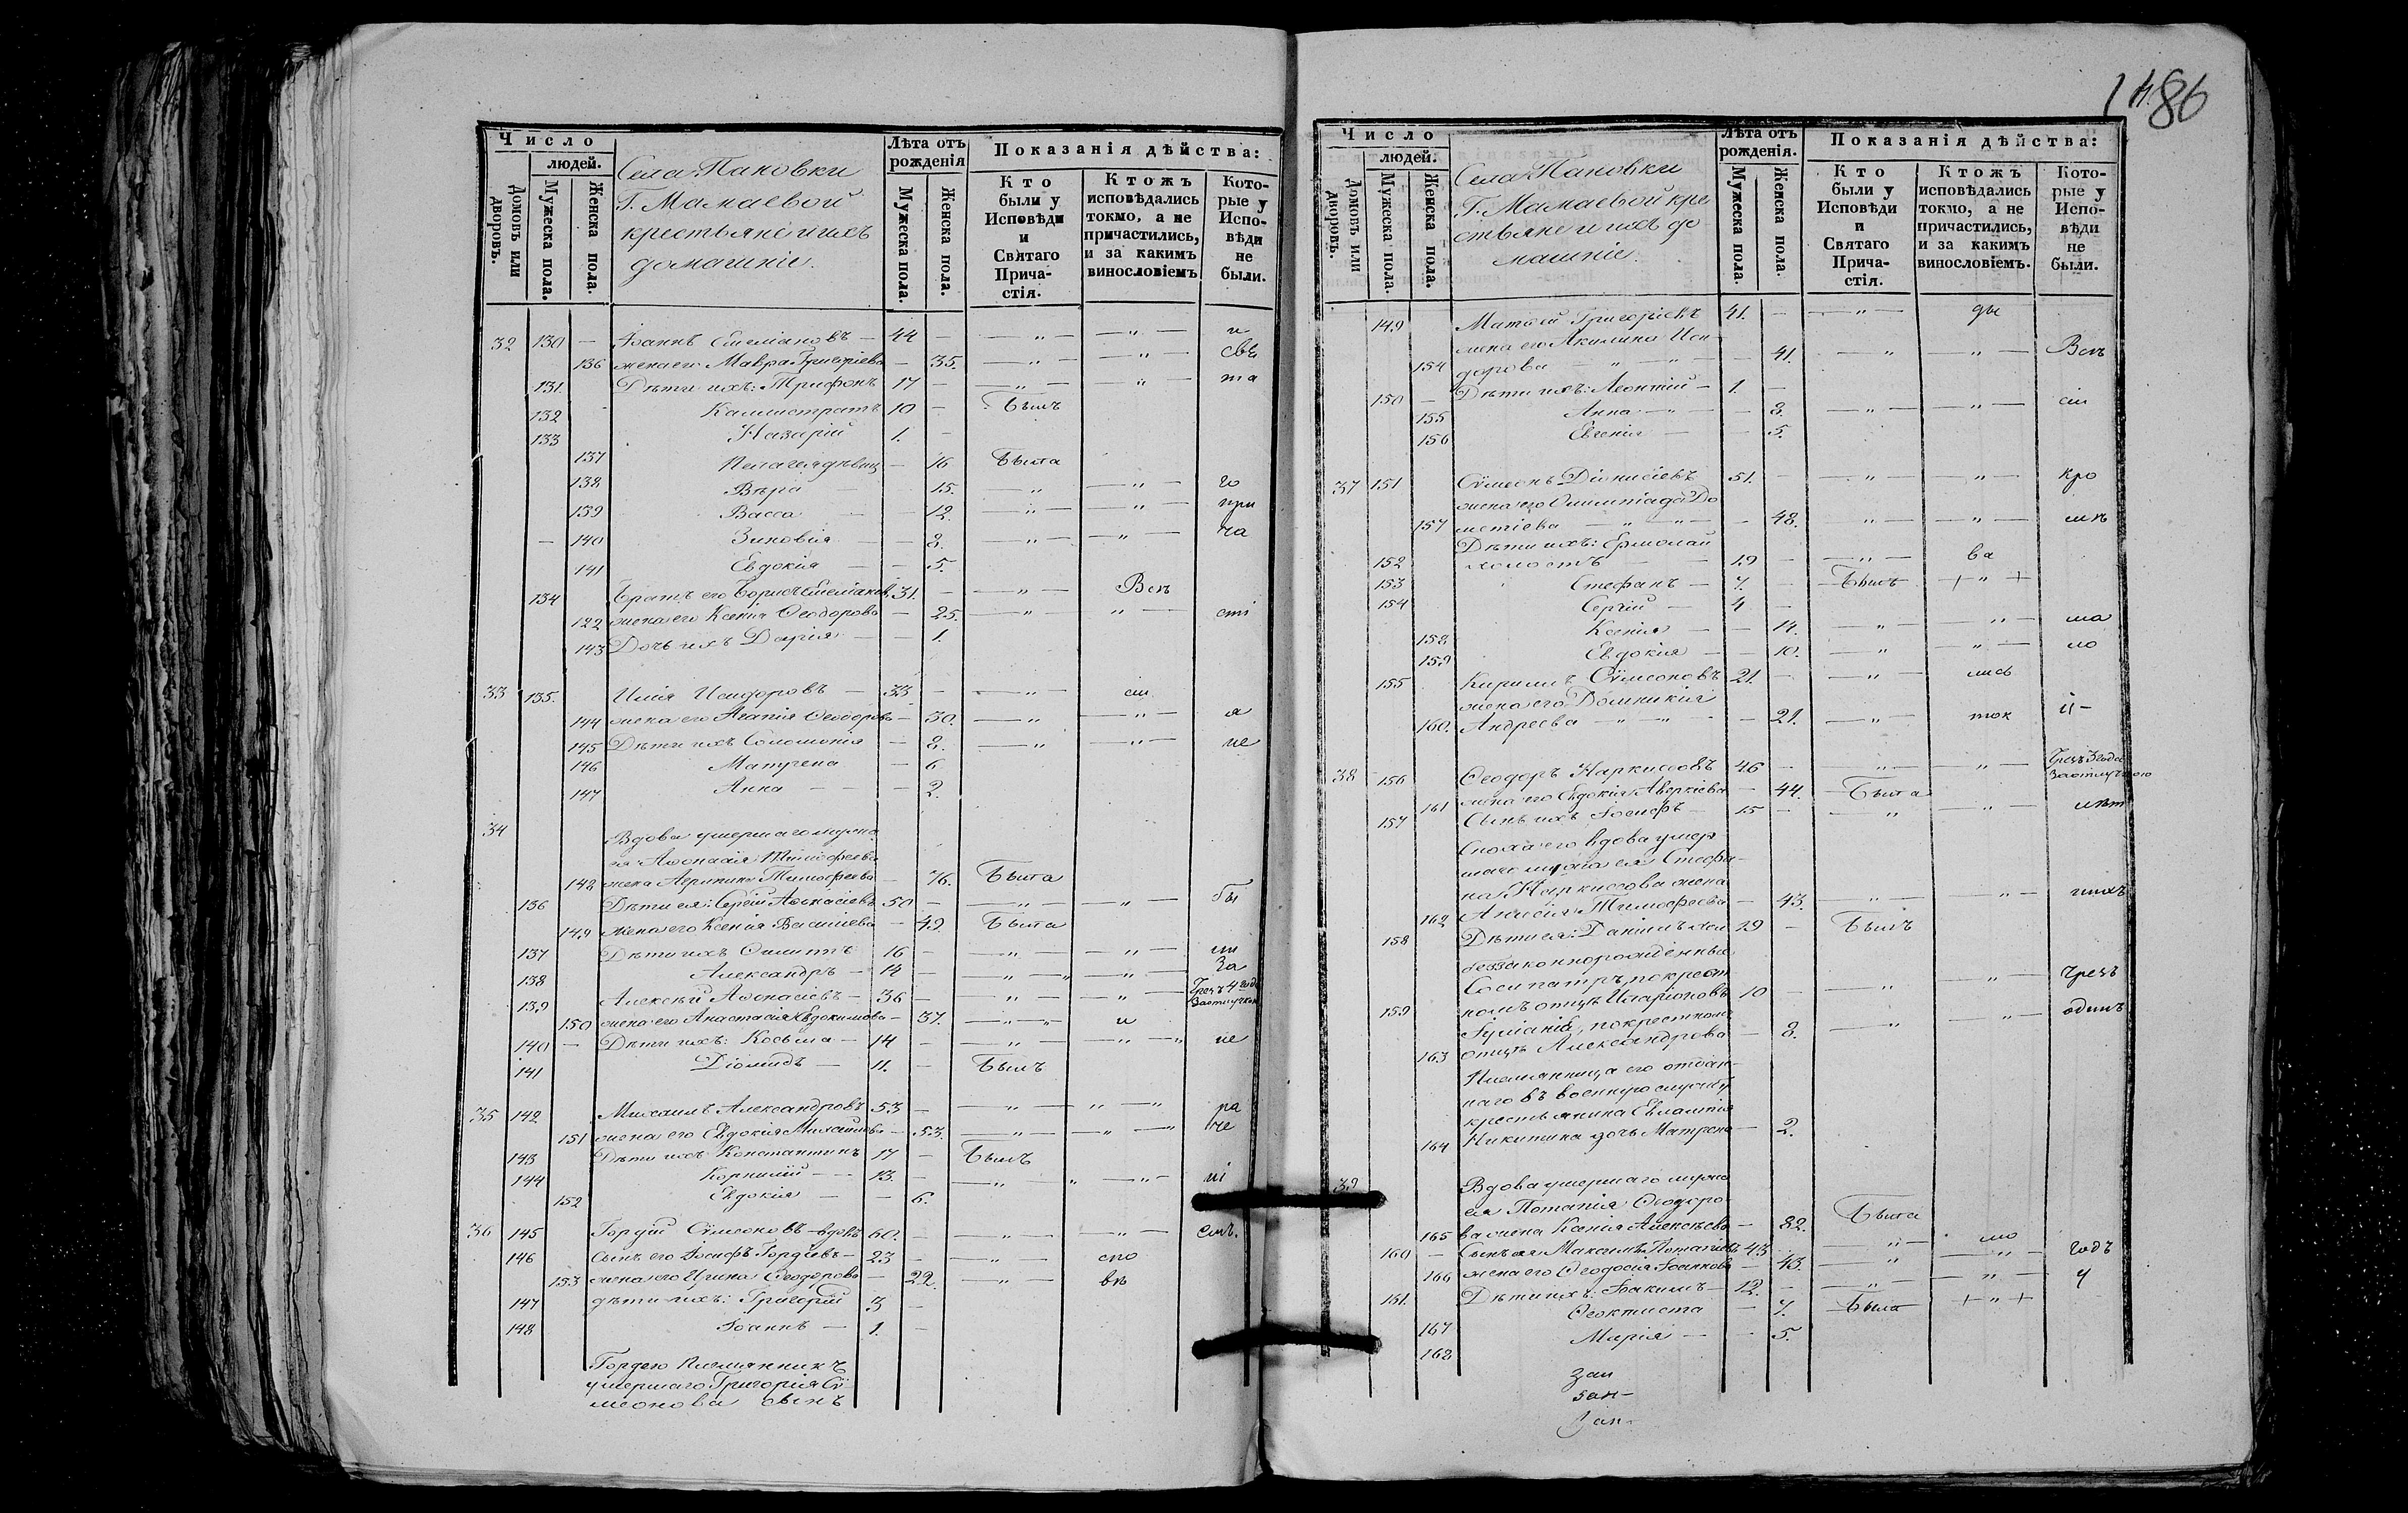 1486
Число
людей.
Домовъ или дворовъ.
Мужеска пола.
Женска пола.
Села Пановки
Г. Мамаевой
крестьяне и ихъ
домашніе.
Лѣта отъ
рожденія
Мужеска пола.
Женска пола.
Показанія дѣйства:
Кто
были у
Исповѣди
и
Святаго
Прича-
стія.
Ктожъ
исповѣдались
токмо, а не
причастились,
и за какимъ
винословіемъ
Кото-
рые у
Испо-
вѣди
не
были.
32 130 – Іоаннъ Емеліановъ – 44 – – „ – – „ – и
136 жена его Мавра Григоріева – 35. – „ – – „ – свѣ
131. Дѣти ихъ: Трифонъ 17 – – „ – „ – та
132 Каллистратъ 10 – Былъ
133 Назарій 1. –
137 Пелагея дѣвиц – 16 Была
138 Вѣра – 15. – „ – – „ – го
139 Васса – – 12. – „ – – „ – при
– 140 Зиновія – – 8. – „ – – „ – ча
141 Евдокія – – 5.
134 Братъ его Борисъ Емеліановъ 31. – – „ – Всѣ
122 жена его Ксенія Ѳеодорова – 25. – „ – „ – сті
143 Дочь ихъ Дарія – – 1.
33 135. Илія Исидоровъ – 33 – – „ – си
144 жена его Агапія Ѳеодорова – 30. – „ – „ – я
145 Дѣти ихъ Соломонія – 8. – „ – „ – не
146 Матрена – 6
147 Анна – – – 2.
34 Вдова умершаго мужа
ея Аѳонасія Тимофеева
148 жена Агрипина Тимофеева – 76. Была
136 Дѣти ея: Сергій Аѳонасіевъ 50 – – „ – – „ – бы
149 жена его Ксенія Василіева – 49 Была
137 Дѣти ихъ Филиппъ 16 – – „ – – „ – ли
138 Александръ – 14 – – „ – „ – „ – За
139 Алексѣй Аѳонасіевъ – 36 – – „ – – „ – Чрезъ 4 года
За отлучкою
150 жена его Анастасія Евдокимова – 37. – „ – „ и
140 – Дѣти ихъ: Косьма – 14 – – „ – – „ – „ не
141 Діомидъ – 11. – Былъ
35 142 Михаилъ Александровъ 53 – – „ – „ – „ ра
151 жена его Евдокія Михайлова – 53. – „ – – „ – „ че
143 Дѣти ихъ Константинъ 17 – Былъ
144 Корнилій – – 13. – – „ – „ – „ – ні
152 Евдокія – – 6.
36 145 Гордій Сѵмеоновъ – вдовъ 60. – – „ – – „ – емъ.
146 Сынъ его Іосифъ Гордіевъ – 23 – – „ – спо
153 жена его Ирина Ѳеодорова – 22. – „ – вѣ
147 дѣти ихъ: Григорій 3 –
148 Іоаннъ – 1. –
Гордею племянникъ
умершаго Григорія Сѵ-
меонова сынъ
Число
людей.
Домовъ или дворовъ.
Мужеска пола.
Женска пола.
Села Пановки
Г. Мамаевой кре
стьяне и ихъ до
машніе.
Лѣта отъ
рожденія.
Мужеска пола.
Женска пола.
Показанія дѣйства:
Кто
были у
Исповѣди
и
Святаго
Прича-
стія.
Ктожъ
исповѣдались
токмо, а не
причастились,
и за какимъ
винословіемъ.
Кото-
рые у
Испо-
вѣди
не
были.
149 Матѳей Григоріевъ 41. – – „ – ды
жена его Акилина Иси-
154 дорова – „ – „ – – 41. – „ „ – Всѣ
150 – Дѣти ихъ: Леонтій – 1. –
155 Анна – „ – – 8. – „ – – „ – си
156 Евгенія – – 5.
37 151 Сѵмеонъ Діонисіевъ 51. – – „ – – „ – кро
жена его Олимпіада До
157 метіева – „ – „ – – 48. „ – – „ – мѣ
Дѣти ихъ: Ермолай
152 холостъ – – 19 – – „ – ва
153 Стефанъ – 7. – Былъ + „ +
154 Сергій – 4 –
158 Ксенія – – 14. – „ – – „ – ма
159 Евдокія – – 10. – „ – „ – ло
155 Кириллъ Сѵмеоновъ 21. – – „ – лись
жена его Домникія
160. Андреева „ – „ – – 21. – „ – ток й –
38 156 Ѳеодоръ Наркиссовъ 46 – „ – – „ – Чрезъ 3 года
За отлучкою
161 жена его Евдокія Аверкіева – 44. Была
157 Сынъ ихъ Іосифъ – 15 – – „ – – „ – лѣт
Сноха его вдова умер
шаго мужа ея Стефа-
на Наркиссова жена
162 Анисія Тимофеева – 43. – „ – – „ – нихъ
158 Дѣти ея: Даніилъ 29 – Былъ
беззаконнорожденные
Сосипатръ, по крест
159 номъ отцѣ Иларіоновъ 10 – – „ – – „ – чрезъ
Іуліанія, по крестном
163 отцѣ Александрова – 8. – „ – – „ – одинъ
Племянница его отдан-
наго въ военную службу
крестьянина Евлампія
164 Никитина дочь Матрена – 2.
39 Вдова умершаго мужа
ея Потапія Ѳеодоро-
165 ва жена Ксенія Алексѣева – 82. Была
160 – Сынъ ея Максимъ Потапіевъ 43 – „ – мо
166 жена его Ѳеодосія Іоаннова – 43. – „ – „ – годъ
161. Дѣти ихъ: Іоакимъ – 12. – – „ – – „ – ч
167 Ѳеоктиста – 7. Была + „ +
168 Марія – – 5.
зан
зан –